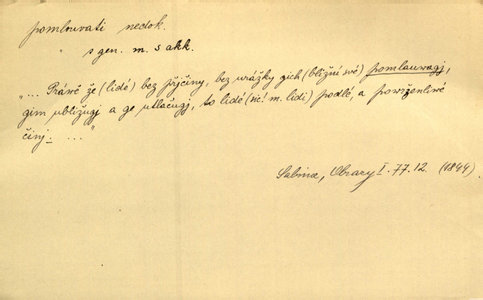 pomlouvati nedok.
" s gen. m. s akk.
"... Právě že (lidé) bez přjčiny, bez urážky gich (bližnj své) pomlauwagj,
gim ubližugj a ge utlačugj, to lidé (ne! m. lidi) podlé, a powrženliwé
činj. ... "
Sabina, Obrazy I. 77. 12. (1844)